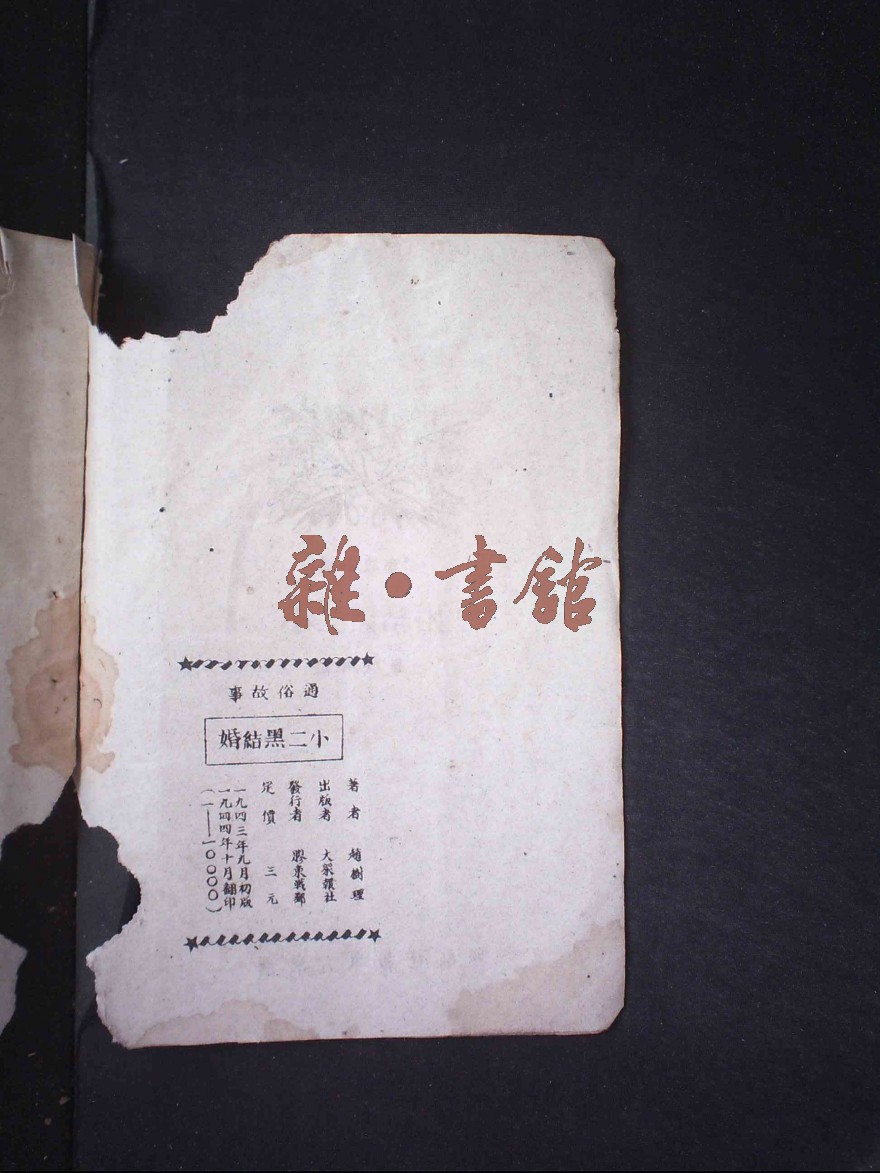 雜·書館
通俗故事
小二黑結婚
著者 趙樹理
出版者 大衆讀社
發行者 膠東戰郵
定價 三元
一九四三年九月初版
一九四四年十月翻印
(一——一〇〇〇〇)